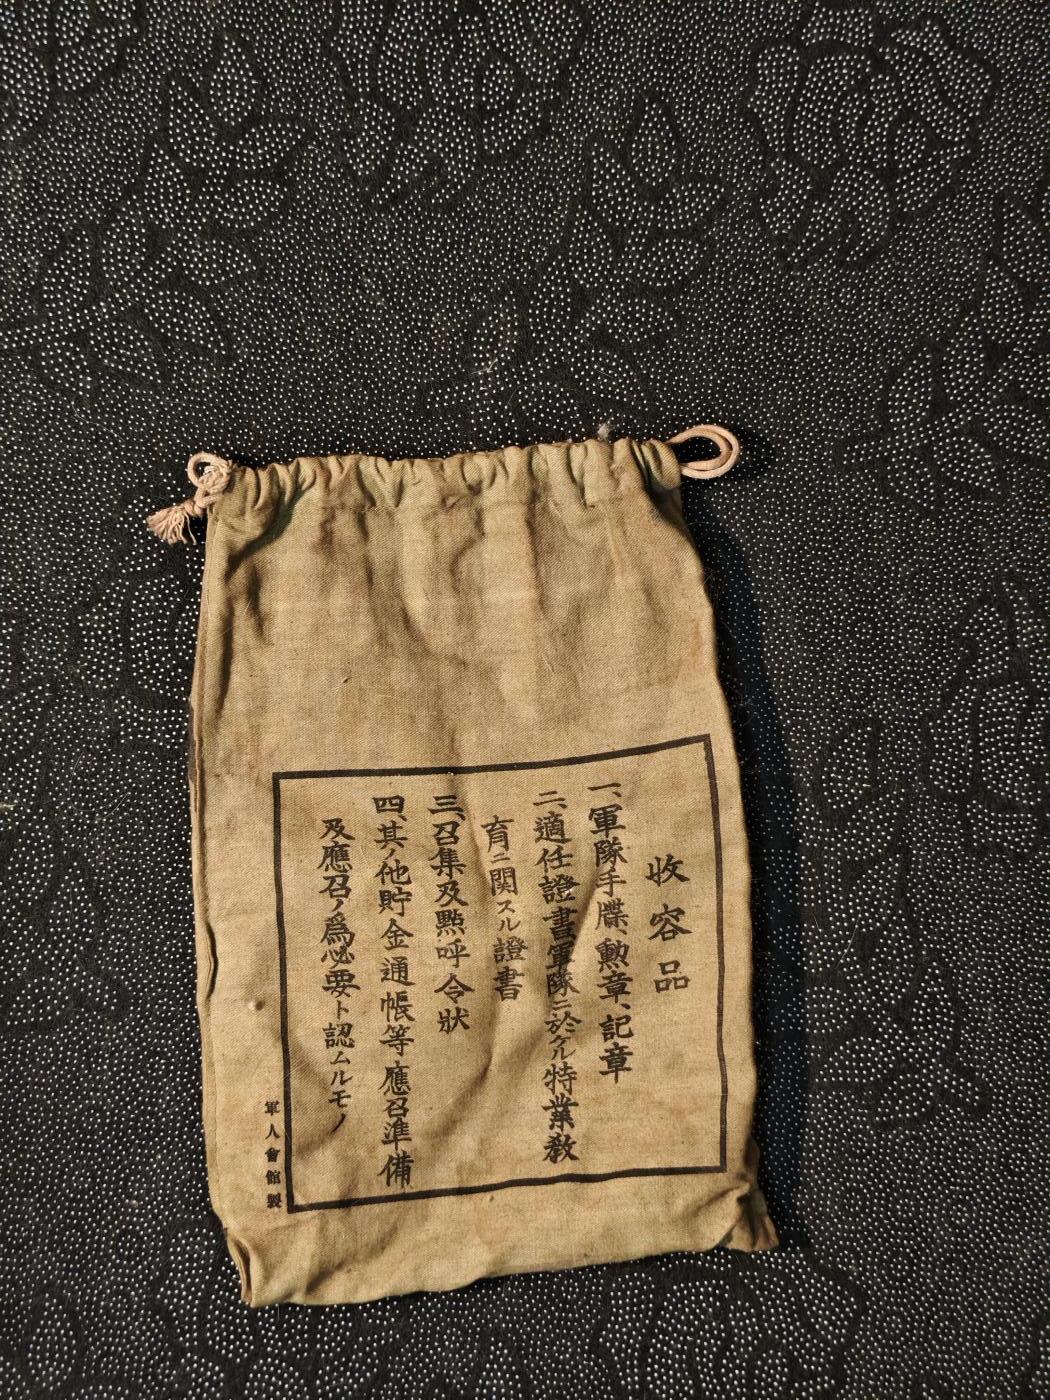 收容品
一、軍隊手牒、勲章、記章
二、適任證書軍隊ニ於ケル特業教
育ニ関スル證書
三、召集及點呼令狀
四、其ノ他貯金通帳等應召準備
及應召ノ爲必要ト認ムルモノ
軍人會館製